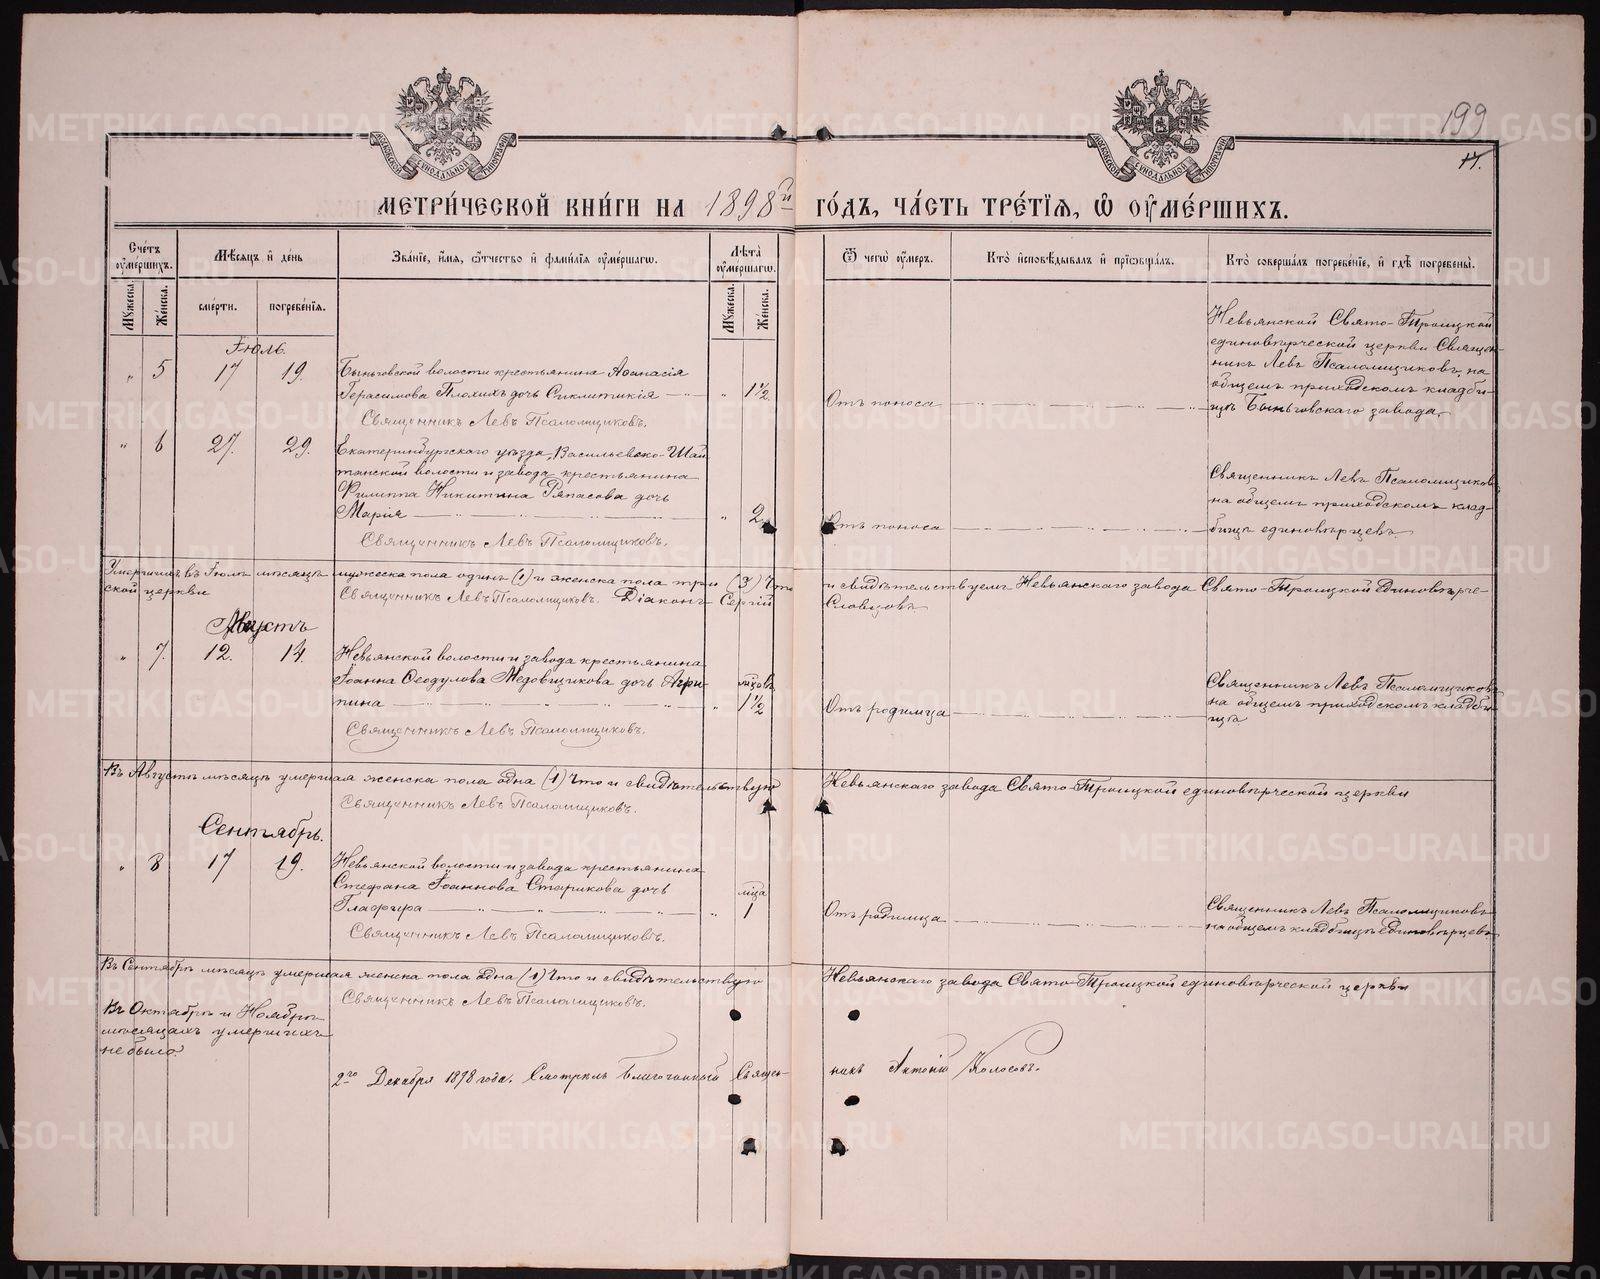 199
МОСКОВСКОЙ СѴНОДАЛЬНОЙ ТИПОГРАФІИ
МОСКОВСКОЙ СѴНОДАЛЬНОЙ ТИПОГРАФІИ
МЕТРИ́ЧЕСКОЙ КНИ́ГИ НА 1898й ГО́ДЪ, ЧА́СТЬ ТРЕ́ТІЯ, Ѡ ОУМЕ́РШИХЪ.
Сче́тъ оуме́ршихъ.
Мꙋжеска.
Же́нска.
Мѣ́сяцъ и де́нь
сме́рти.
погребе́нія.
Зва́ніе, и́мя, ѻ́тчество и фами́лія оуме́ршагѡ.
Лѣ́та оуме́ршагѡ.
Мꙋжеска.
Же́нска.
Ѿ чегѡ̀ оу́меръ.
Кто̀ исповѣ́дывалъ и пріѡбща́лъ.
Кто̀ соверша́лъ погребе́ніе, и гдѣ̀ погребены̀.
Іюль.
„ 5 17 19.
Быньговской волости крестьянина Аѳанасія
Герасимова Плохихъ дочь Синклитикія „ 1½
Священникъ Левъ Псаломщиковъ.
Отъ поноса
Невьянской Свято-Троицкой
единовѣрческой церкви Священ-
никъ Левъ Псаломщиковъ, на
общемъ приходскомъ кладби-
щѣ Быньговскаго завода.
„ 6 27. 29.
Екатеринбургскаго уѣзда, Васильевско-Шай
танской волости и завода крестьянина
Филиппа Никитина Ряпасова дочь
Марія „ 2
Священникъ Левъ Псаломщиковъ.
Отъ поноса
Священникъ Левъ Псаломщиковъ
на общемъ приходскомъ клад-
бищѣ единовѣрцевъ
Умершихъ въ Іюлѣ мѣсяцѣ мужеска пола одинъ (1) и женска пола три (3) Что
и свидѣтельствуемъ Невьянскаго завода Свято-Троицкой Единовѣрче-
ской церкви Священникъ Левъ Псаломщиковъ. Діаконъ Сергій
Словцовъ
Августъ
„ 7. 12. 14.
Невьянской волости и завода крестьянина
Іоанна Ѳеодулова Медовщикова дочь Агри-
пина „ мѣсяцъ 1½
Священникъ Левъ Псаломщиковъ.
Отъ родимца
Священникъ Левъ Псаломщиковъ
на общемъ приходскомъ кладби-
щѣ
Въ Августѣ мѣсяцѣ умершая женска пола одна (1) Что и свидѣтельствую
Невьянскаго завода Свято-Троицкой единовѣрческой церкви
Священникъ Левъ Псаломщиковъ.
Сентябрь.
„ 8 17 19.
Невьянской волости и завода крестьянина
Стефана Іоаннова Старикова дочь
Глафира „ мѣсяца 1
Священникъ Левъ Псаломщиковъ.
Отъ родимца
Священникъ Левъ Псаломщиковъ
на общемъ кладбищѣ единовѣрцевъ
Въ Сентябрѣ мѣсяцѣ умершая женска пола одна (1) Что и свидѣтельствую
Невьянскаго завода Свято-Троицкой единовѣрческой церкви
Священникъ Левъ Псаломщиковъ.
Въ Октябрѣ и Ноябрѣ
мѣсяцахъ умершихъ
не было.
2го Декабря 1898 года. Смотрѣлъ Благочинный Священ-
никъ Антоній Колосовъ.
METRIKI.GASO-URAL.RU